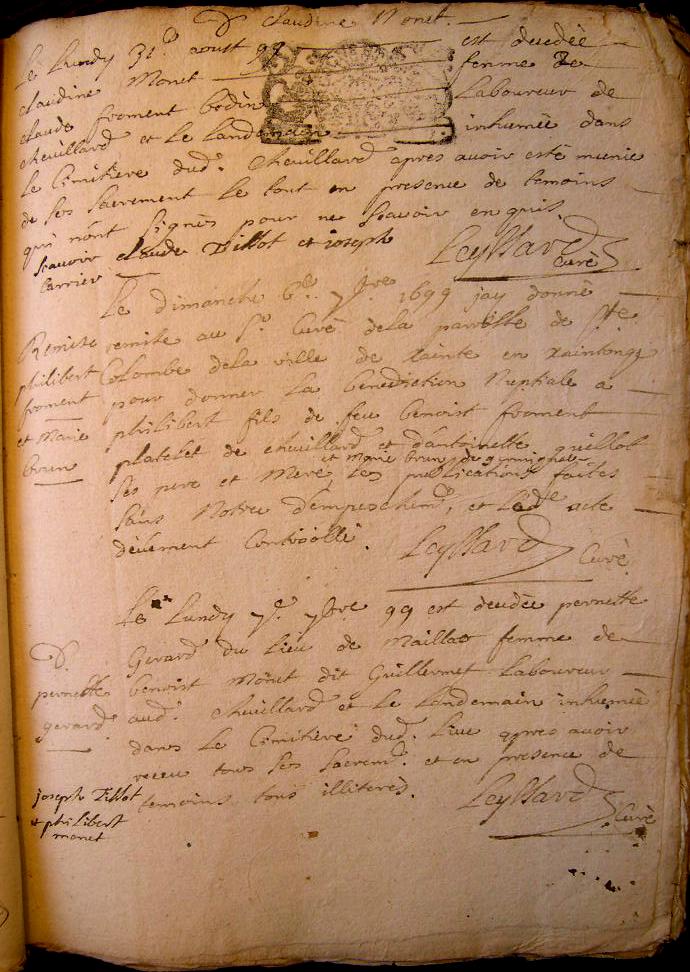 D. claudine Monet.
Le Lundy 31e. aoust 99 est decedée
claudine Monet femme de
claude froment bodin Laboureur de
chevillard et le landemain inhumée dans
le Cimitiere dud. Chevillard apres avoir esté munie
de ses sacrement le tout en presence de temoins
qui n'ont signés pour ne scavoir enquis,
scavoir claude Tillot et joseph
carrier
Leyssard
Curé
Remise
philibert
froment
et Marie
brun
Le dimanche 6e. 7bre 1699 jay donné
remise au Sr. Curé de la parroisse de Ste
Colombe de la ville de xainte en xaintonge
pour donner la benediction Nuptiale a
philibert fils de feu benoist froment
platelet de chevillard et d'antoinette guillot
et marie brun de
ses pere et mere, les publications faites
sans Notre d'empeschemt, et led. acte
deüement Controollé.
Leyssard Curé
D.
pernette
gerard
Le Lundy 7e. 7bre 99 est decedée pernette
Gerard du lieu de Maillat femme de
benoist Monet dit Guillermet Laboureur
aud. Chevillard et le landemain inhumée
dans le Cimitiere dud. lieu apres avoir
receu tous ses sacremt. et en presence de
temoins tous illiterés.
joseph Tillot
et philibert
monet
Leyssard
Curé